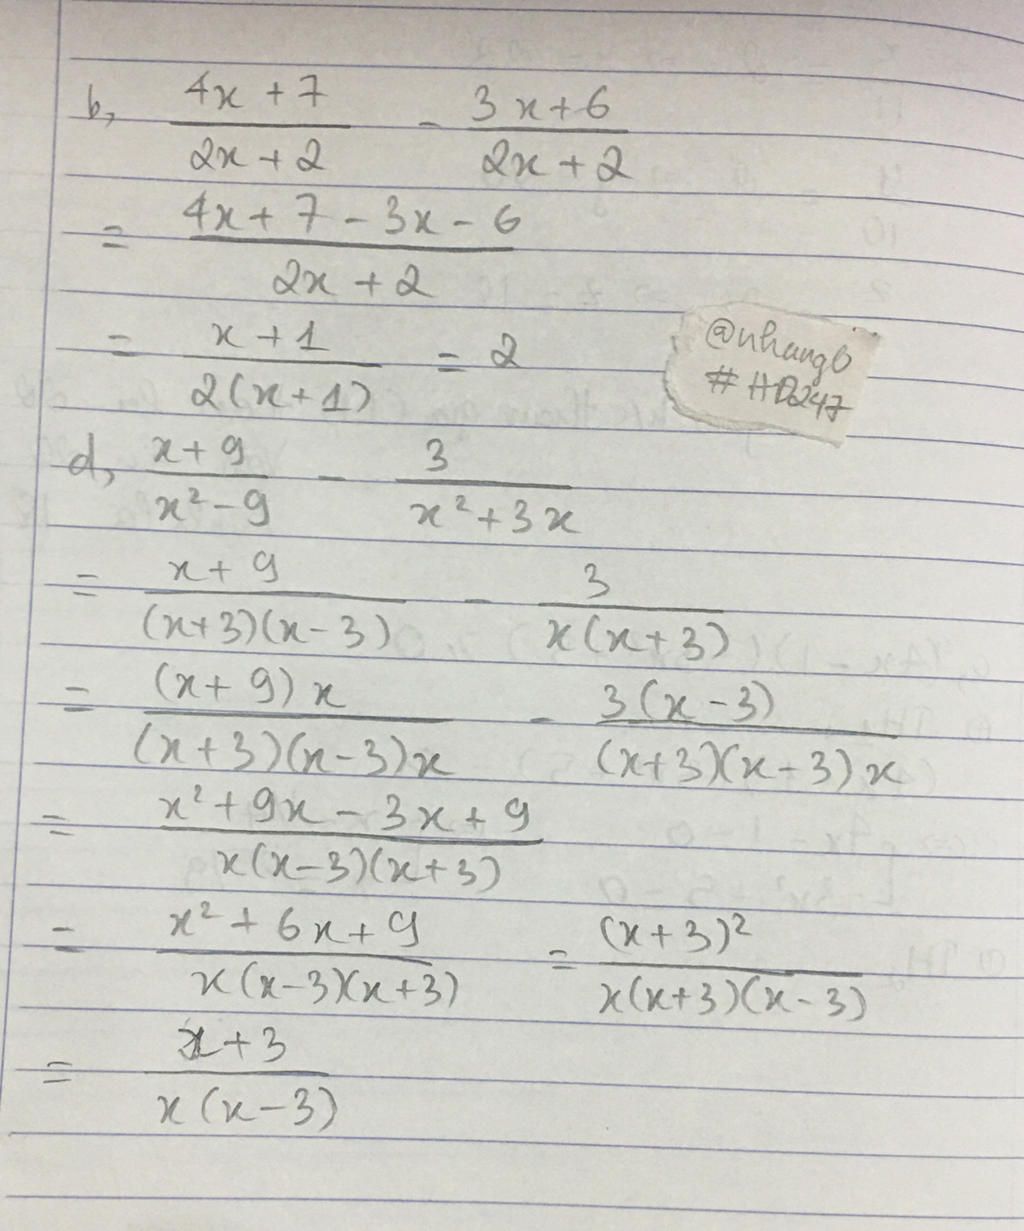 b, (4x + 7)/(2x + 2) - (3x + 6)/(2x + 2)
= (4x + 7 - 3x - 6)/(2x + 2)
= (x + 1)/(2(x + 1)) = 2
@nhung6
#HĐ247
d, (x + 9)/(x² - 9) - 3/(x² + 3x)
= (x + 9)/((x+3)(x-3)) - 3/(x(x+3))
= ((x + 9)x)/((x+3)(x-3)x) - (3(x-3))/((x+3)(x-3)x)
= (x² + 9x - 3x + 9)/(x(x-3)(x+3))
= (x² + 6x + 9)/(x(x-3)(x+3)) = (x+3)²/(x(x+3)(x-3))
= (x+3)/(x(x-3))